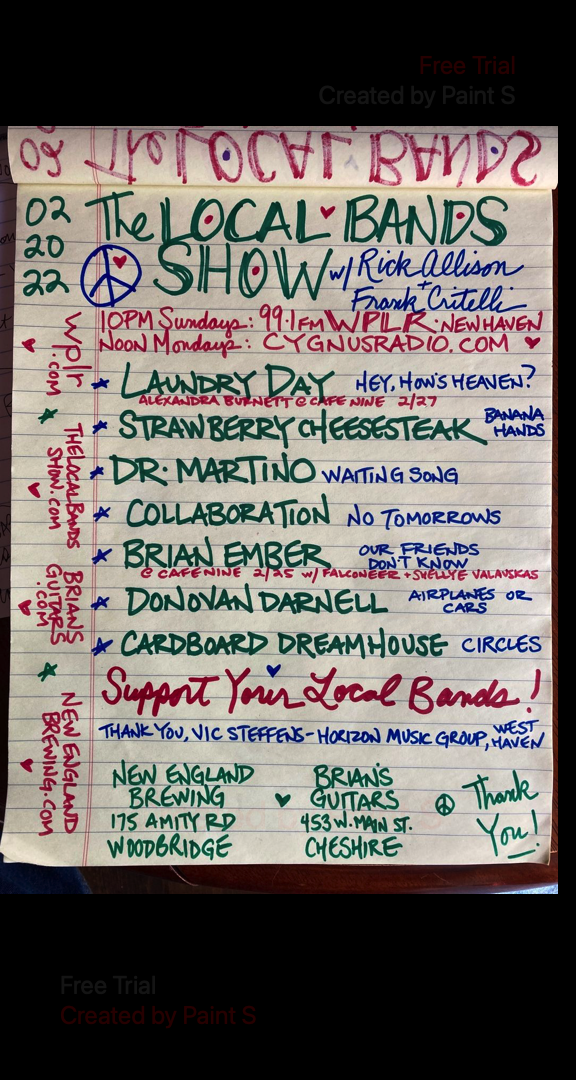 Free Trial
Created by Paint S
The LOCAL BANDS
02
20
22
The LOCAL BANDS
SHOW w/ Rick Allison
+ Frank Critelli
10PM Sundays: 99.1FM WPLR • NEW HAVEN
NOON Mondays: CYGNUSRADIO.COM
LAUNDRY DAY HEY, HOW'S HEAVEN?
ALEXANDRA BURNETT @ CAFE NINE 2/27
STRAWBERRY CHEESESTEAK BANANA HANDS
DR. MARTINO WAITING SONG
COLLABORATION NO TOMORROWS
BRIAN EMBER OUR FRIENDS DON'T KNOW
@ CAFE NINE 2/25 w/ FALCONEER + SHELLYE VALAUSKAS
DONOVAN DARNELL AIRPLANES OR CARS
CARDBOARD DREAMHOUSE CIRCLES
Support Your Local Bands!
THANK YOU, VIC STEFFENS - HORIZON MUSIC GROUP, WEST HAVEN
NEW ENGLAND
BREWING
175 AMITY RD
WOODBRIDGE
BRIAN'S
GUITARS
453 W. MAIN ST.
CHESHIRE
Thank
You!
wplr.com
THELOCALBANDSSHOW.COM
BRIANSGUITARS.COM
NEW ENGLANDBREWING.COM
Free Trial
Created by Paint S